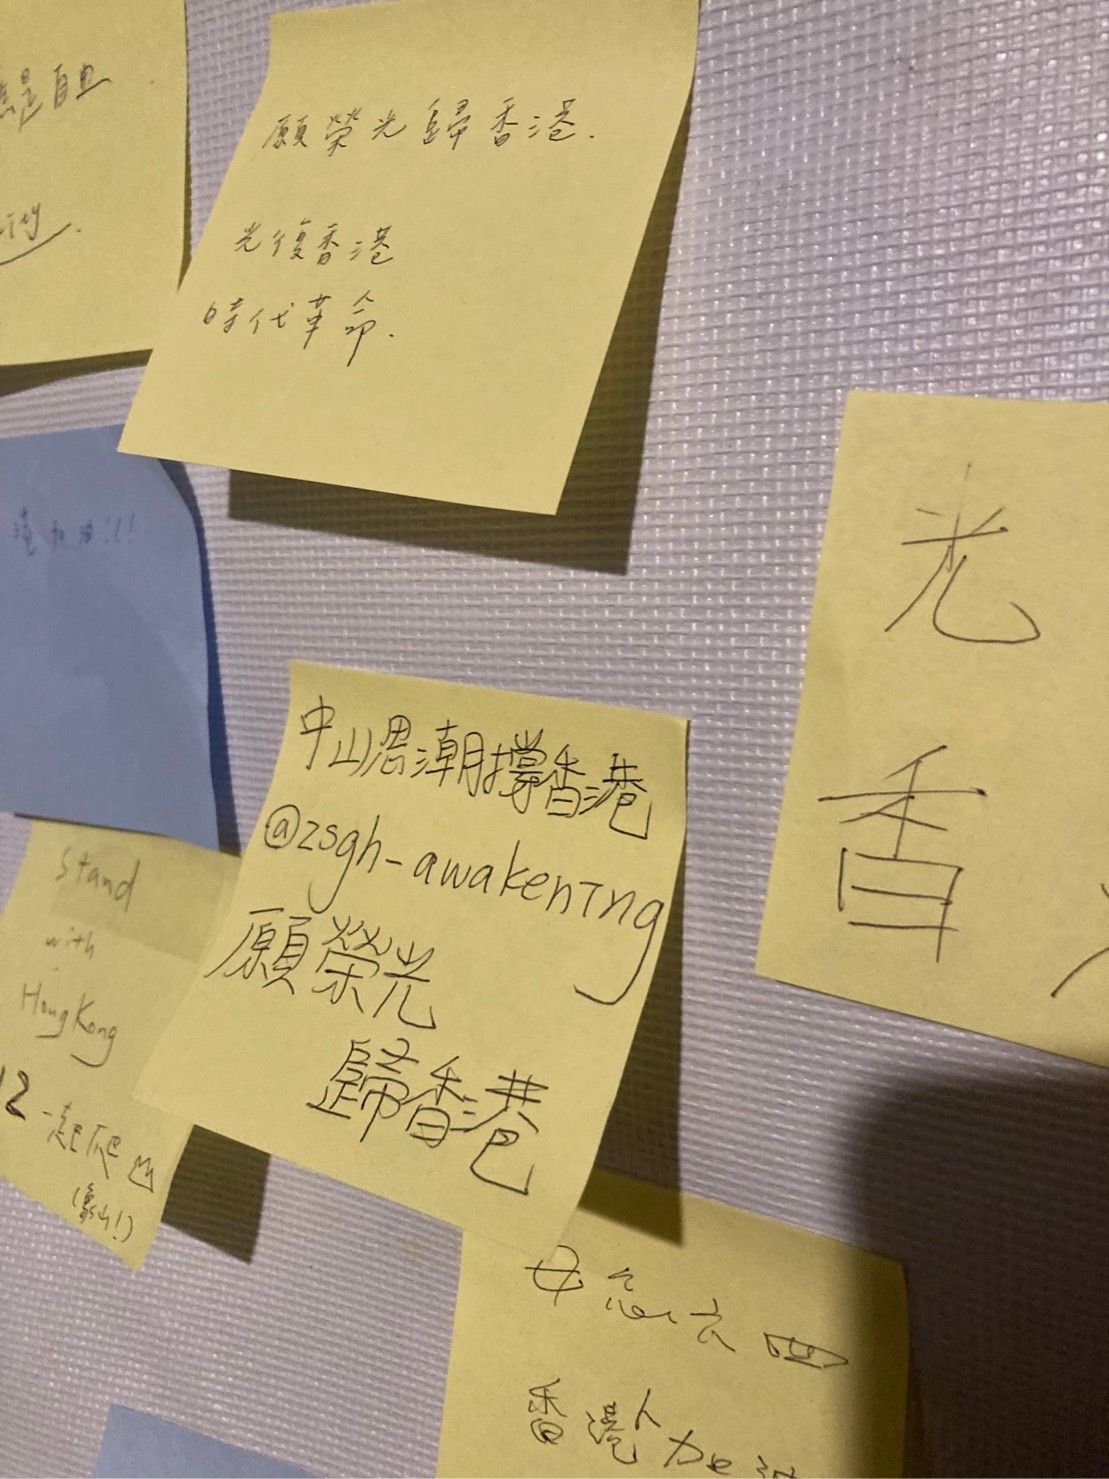 是自由
願榮光歸香港.
光復香港
時代革命.
港加油!!!
光
香
中山思潮撐香港
@zsgh_awakening
願榮光
歸香港
Stand
with
Hong Kong
12一起爬山
(象山!)
毋忘六四
香港人加油